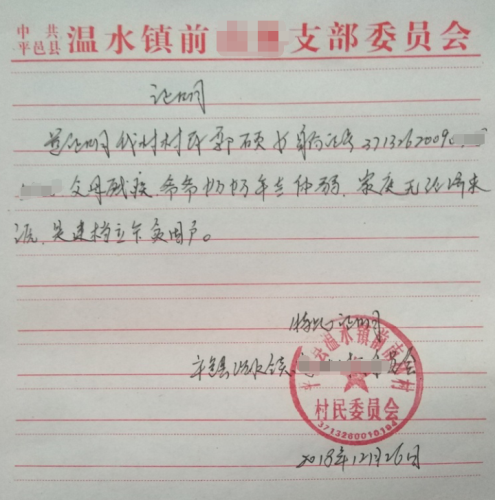 中共
平邑县 温水镇前 支部委员会
证明
兹证明我村村民郭硕 女 身份证号 3713262009
父母残疾、爷爷奶奶年老体弱、家庭无经济来
源,是建档立卡贫困户。
特此证明
平邑县温水镇 委会
温水镇前 村
村民委员会
3713260010194
2018年12月26日